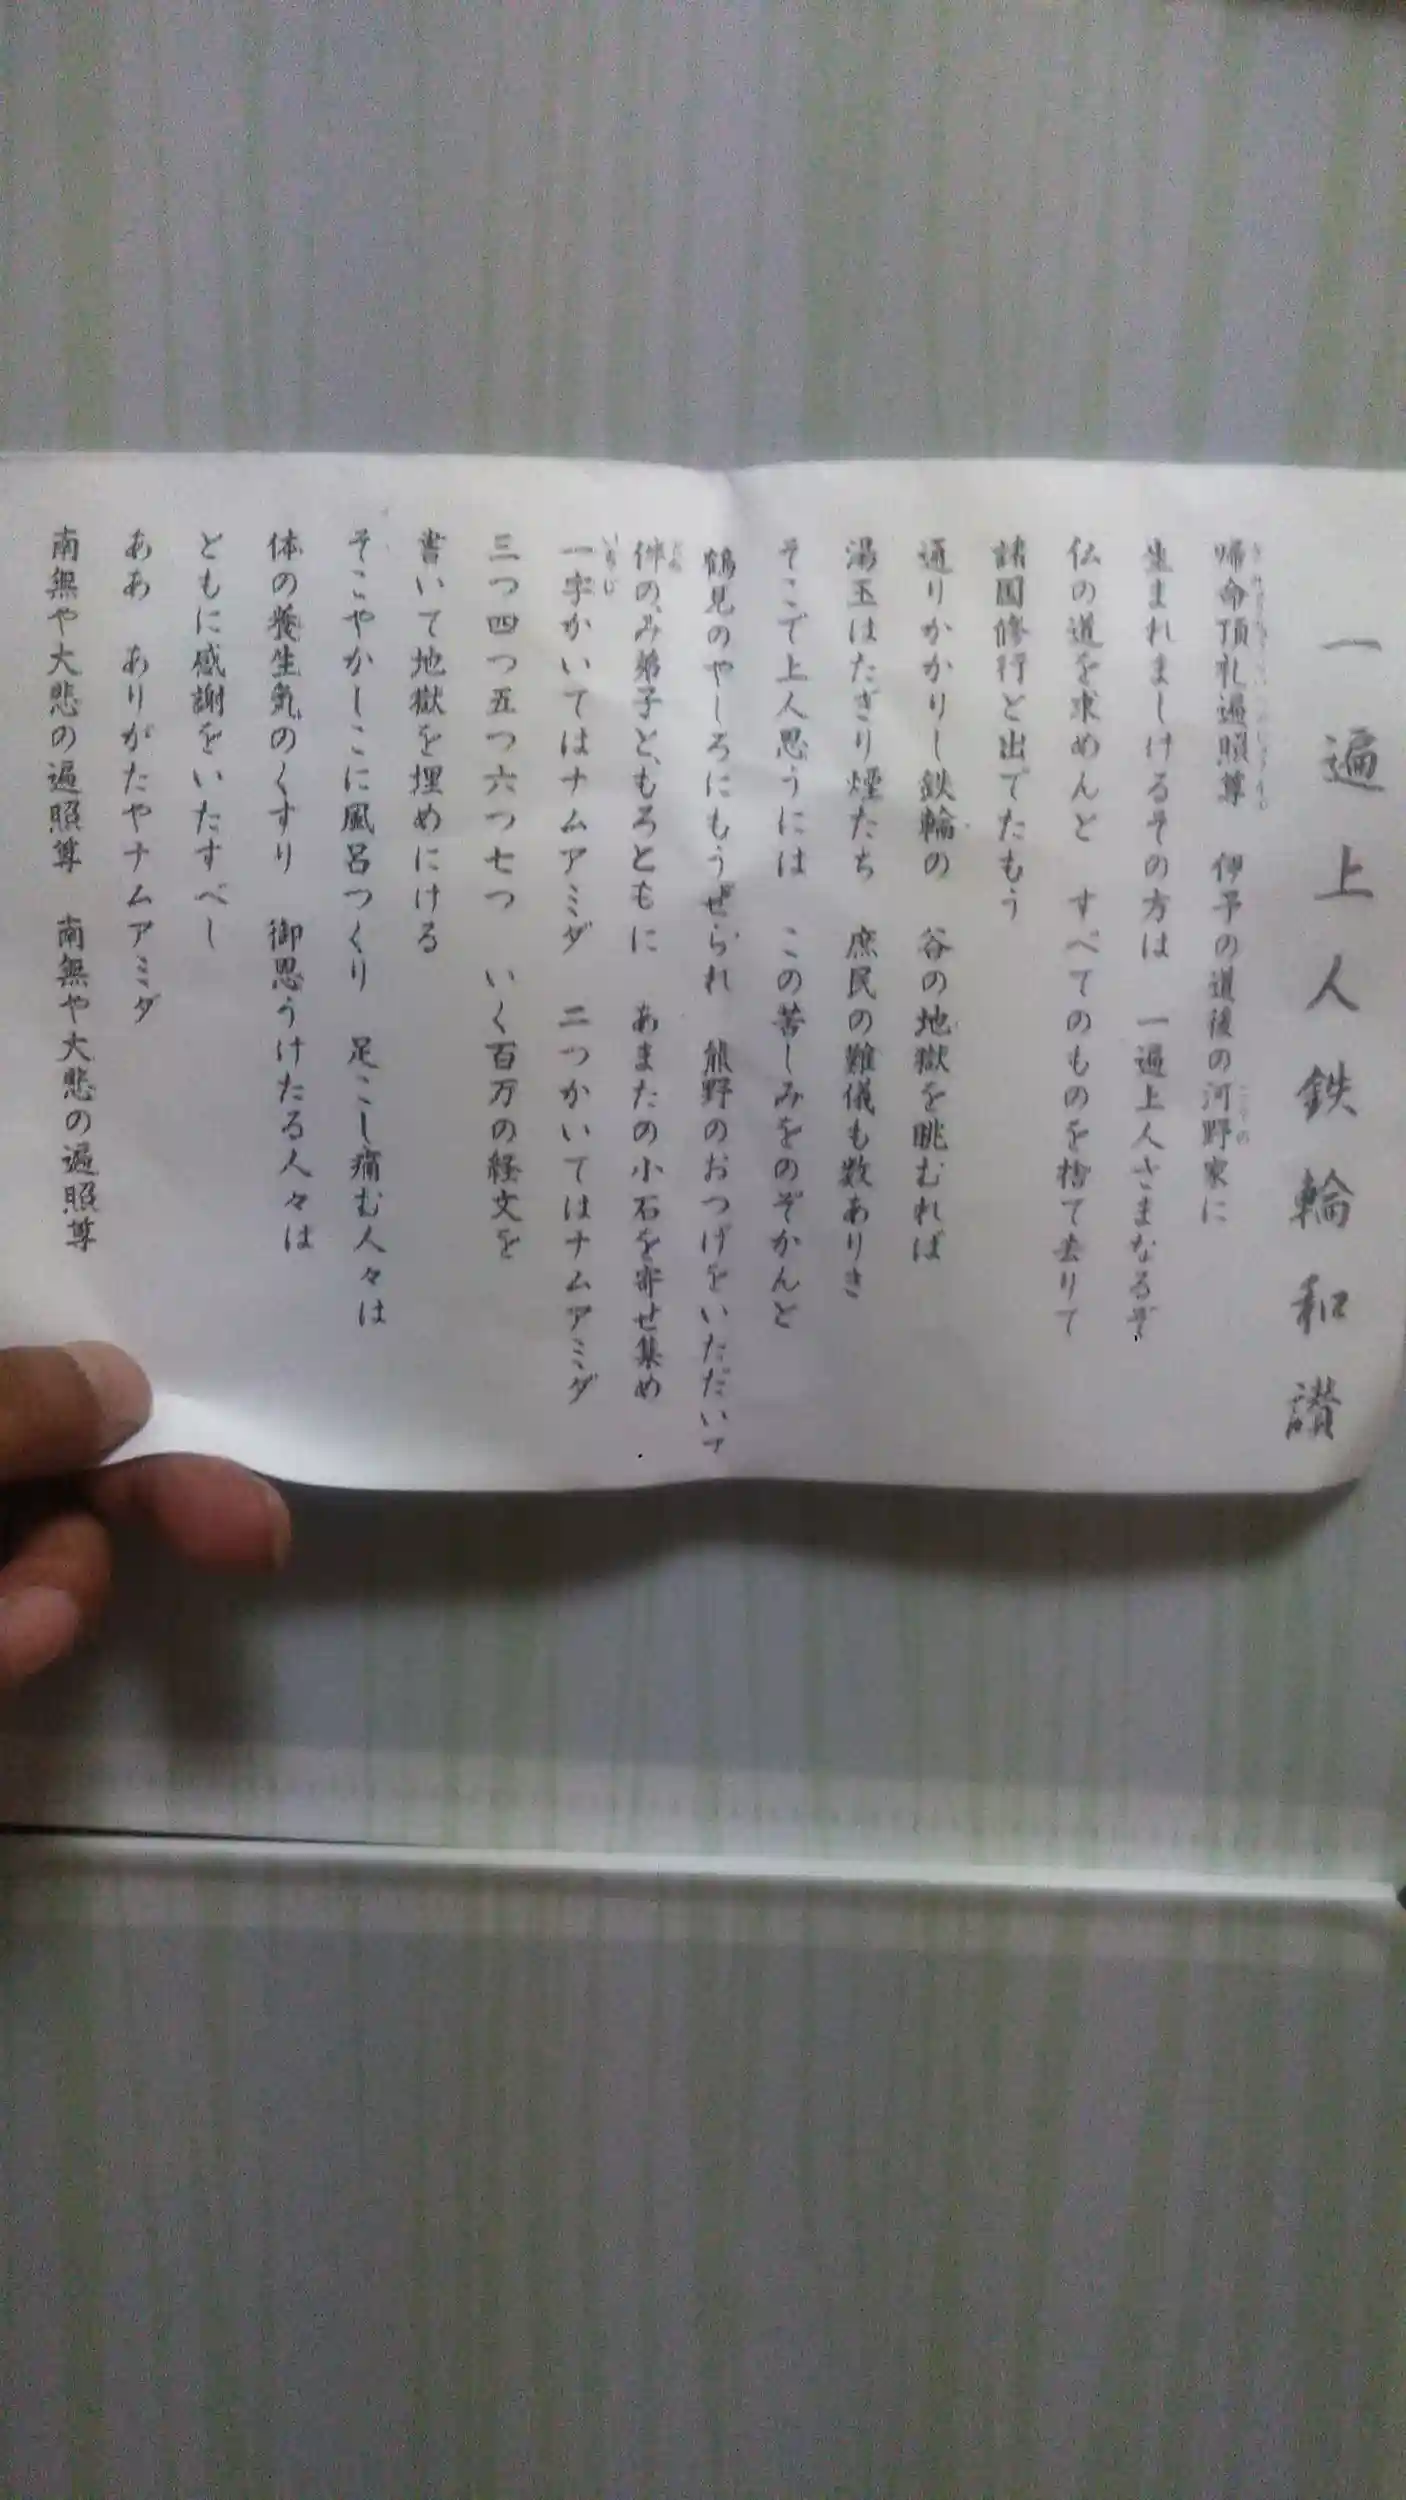 一遍上人鉄輪和讃
帰命頂礼遍照尊　伊予の道後の河野家に
生まれましけるその方は　一遍上人さまなるぞ
仏の道を求めんと　すべてのものを捨て去りて
諸国修行と出でたもう
通りかかりし鉄輪の　谷の地獄を眺むれば
湯玉はたぎり煙たち　庶民の難儀も数ありき
そこで上人思うには　この苦しみをのぞかんと
鶴見のやしろにもうぜられ　熊野のおつげをいただいて
伴のみ弟子と、もろともに　あまたの小石を寄せ集め
一字かいてはナムアミダ　二つかいてはナムアミダ
三つ四つ五つ六つ七つ　いく百万の経文を
書いて地獄を埋めにける
そこやかしこに風呂つくり　足こし痛む人々は
体の養生気のくすり　御恩うけたる人々は
ともに感謝をいたすべし
ああ　ありがたやナムアミダ
南無や大悲の遍照尊　南無や大悲の遍照尊